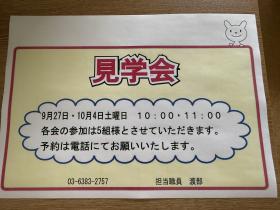 見学会
9月27日・10月4日土曜日　10：00・11：00
各会の参加は5組様とさせていただきます。
予約は電話にてお願いいたします。
03-6383-2757　担当職員　渡部